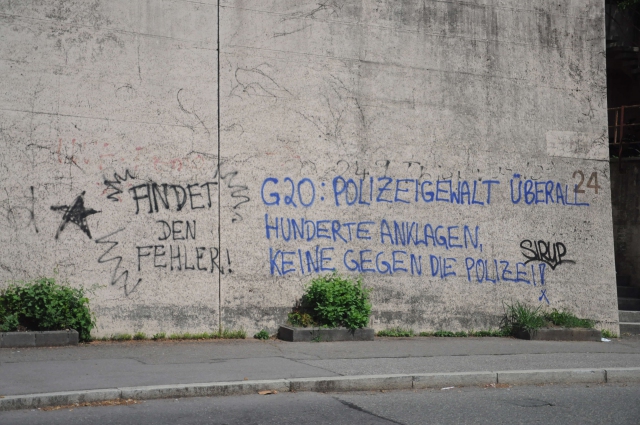 FINDET
DEN
FEHLER!
G20: POLIZEIGEWALT ÜBERALL
HUNDERTE ANKLAGEN,
KEINE GEGEN DIE POLIZEI!
24
SIRUP